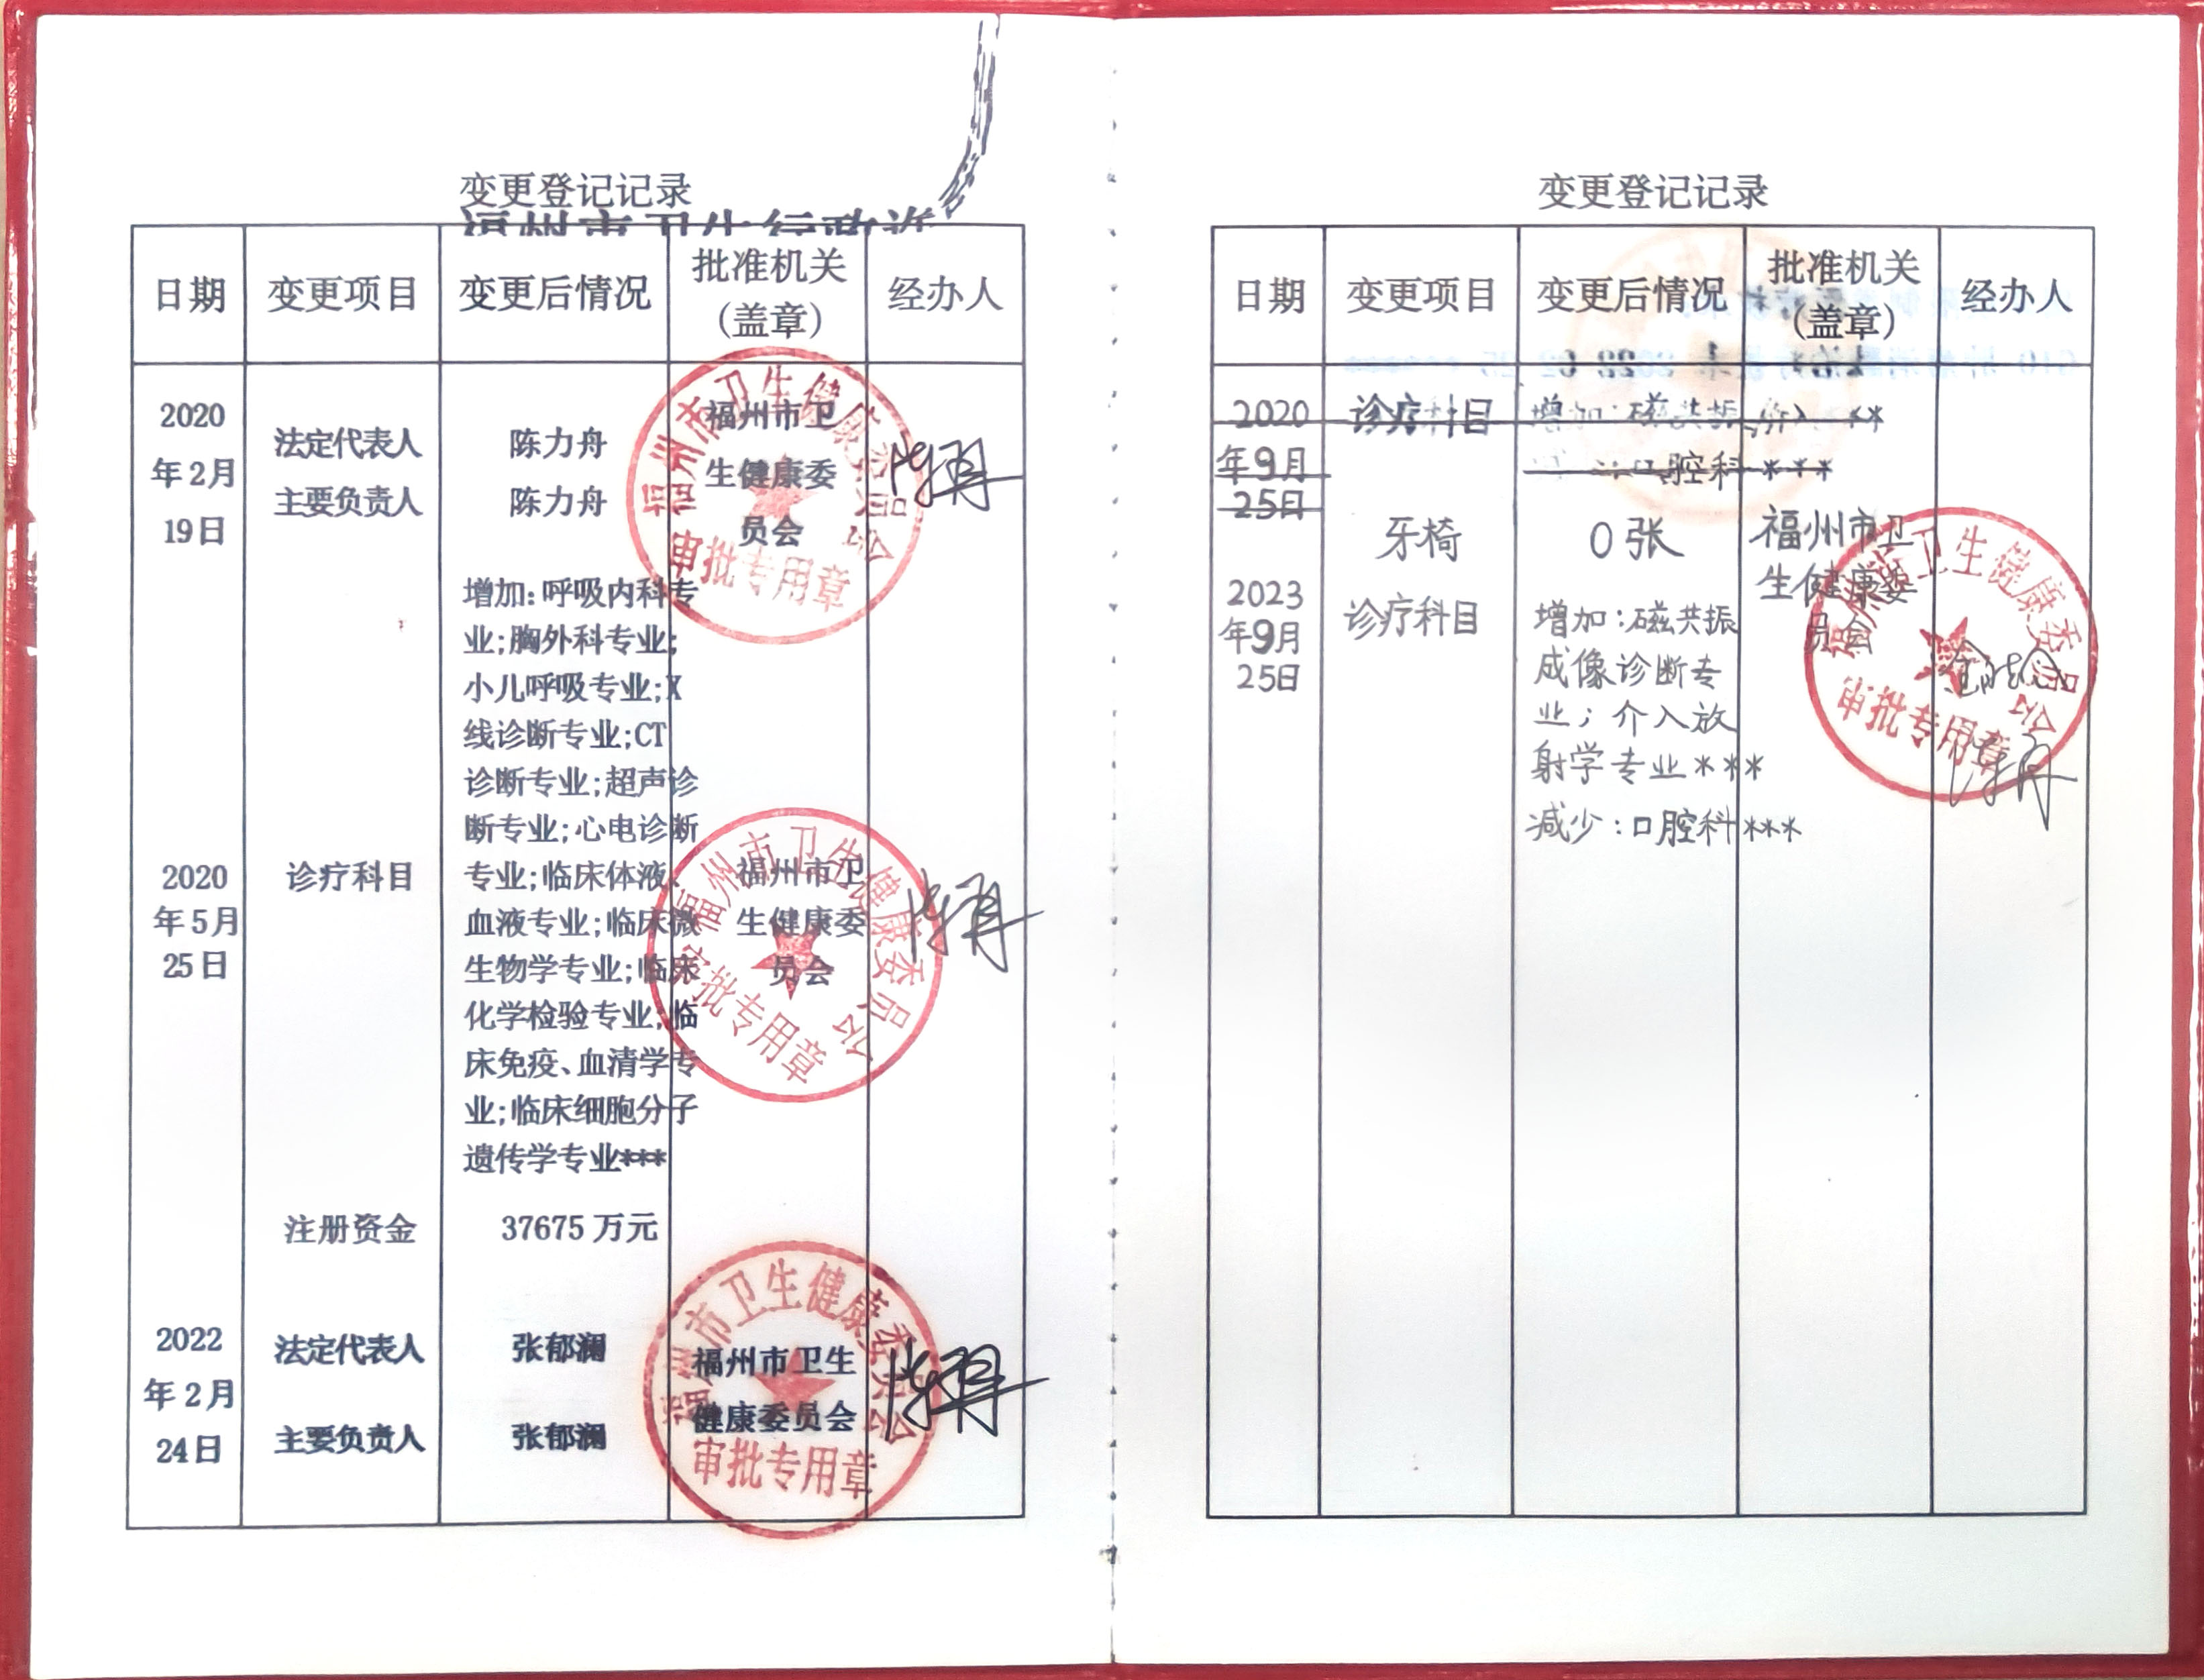 变更登记记录
日期 变更项目 变更后情况 批准机关(盖章) 经办人
2020
年2月
19日
法定代表人 陈力舟
主要负责人 陈力舟
福州市卫
生健康委
员会
福州市卫生健康委员会
审批专用章
2020
年5月
25日
诊疗科目
增加:呼吸内科专
业;胸外科专业;
小儿呼吸专业;X
线诊断专业;CT
诊断专业;超声诊
断专业;心电诊断
专业;临床体液、
血液专业;临床微
生物学专业;临床
化学检验专业;临
床免疫、血清学专
业;临床细胞分子
遗传学专业***
福州市卫
生健康委
员会
福州市卫生健康委员会
审批专用章
注册资金 37675万元
2022
年2月
24日
法定代表人 张郁澜
主要负责人 张郁澜
福州市卫生
健康委员会
福州市卫生健康委员会
审批专用章
变更登记记录
日期 变更项目 变更后情况 批准机关(盖章) 经办人
2020 诊疗科目 增加:磁共振 介入 **
年9月 口腔科***
25日
牙椅 0张
福州市卫
生健康委
员会
2023
年9月
25日
诊疗科目
增加:磁共振
成像诊断专
业;介入放
射学专业***
减少:口腔科***
福州市卫生健康委员会
审批专用章